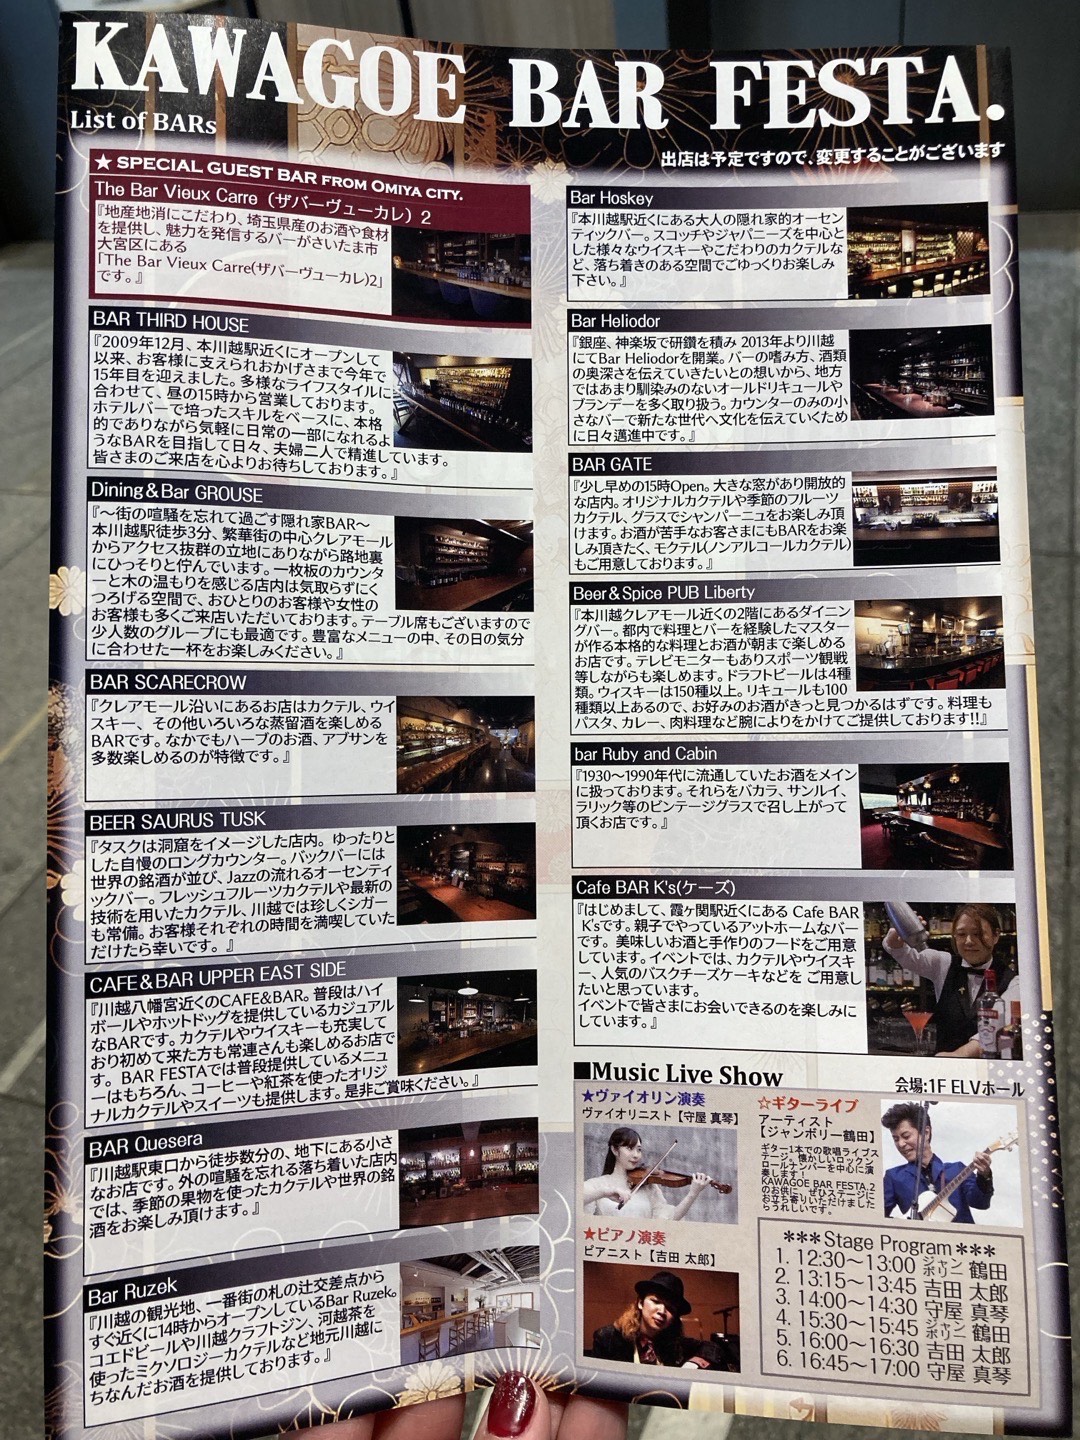 KAWAGOE BAR FESTA.
List of BARs
出店は予定ですので、変更することがございます
★ SPECIAL GUEST BAR FROM OMIYA CITY.
The Bar Vieux Carre（ザバーヴューカレ）2
『地産地消にこだわり、埼玉県産のお酒や食材
を提供し、魅力を発信するバーがさいたま市
大宮区にある
「The Bar Vieux Carre(ザバーヴューカレ)2」
です。』
BAR THIRD HOUSE
『2009年12月、本川越駅近くにオープンして
以来、お客様に支えられおかげさまで今年で
15年目を迎えました。多様なライフスタイルに
合わせて、昼の15時から営業しております。
ホテルバーで培ったスキルをベースに、本格
的でありながら気軽に日常の一部になれるよ
うなBARを目指して日々、夫婦二人で精進しています。
皆さまのご来店を心よりお待ちしております。』
Dining＆Bar GROUSE
『～街の喧騒を忘れて過ごす隠れ家BAR～
本川越駅徒歩3分、繁華街の中心クレアモール
からアクセス抜群の立地にありながら路地裏
にひっそりと佇んでいます。一枚板のカウンタ
ーと木の温もりを感じる店内は気取らずにく
つろげる空間で、おひとりのお客様や女性の
お客様も多くご来店いただいております。テーブル席もございますので
少人数のグループにも最適です。豊富なメニューの中、その日の気分
に合わせた一杯をお楽しみください。』
BAR SCARECROW
『クレアモール沿いにあるお店はカクテル、ウイ
スキー、その他いろいろな蒸留酒を楽しめる
BARです。なかでもハーブのお酒、アブサンを
多数楽しめるのが特徴です。』
BEER SAURUS TUSK
『タスクは洞窟をイメージした店内。ゆったりと
した自慢のロングカウンター。バックバーには
世界の銘酒が並び、Jazzの流れるオーセンティ
ックバー。フレッシュフルーツカクテルや最新の
技術を用いたカクテル、川越では珍しくシガー
も常備。お客様それぞれの時間を満喫していた
だけたら幸いです。』
CAFE＆BAR UPPER EAST SIDE
『川越八幡宮近くのCAFE&BAR。普段はハイ
ボールやホットドッグを提供しているカジュアル
なBARです。カクテルやウイスキーも充実して
おり初めて来た方も常連さんも楽しめるお店で
す。BAR FESTAでは普段提供しているメニュ
ーはもちろん、コーヒーや紅茶を使ったオリジ
ナルカクテルやスイーツも提供します。是非ご賞味ください。』
BAR Quesera
『川越駅東口から徒歩数分の、地下にある小さ
なお店です。外の喧騒を忘れる落ち着いた店内
では、季節の果物を使ったカクテルや世界の銘
酒をお楽しみ頂けます。』
Bar Ruzek
『川越の観光地、一番街の札の辻交差点から
すぐ近くに14時からオープンしているBar Ruzek。
コエドビールや川越クラフトジン、河越茶を
使ったミクソロジーカクテルなど地元川越に
ちなんだお酒を提供しております。』
Bar Hoskey
『本川越駅近くにある大人の隠れ家的オーセン
ティックバー。スコッチやジャパニーズを中心と
した様々なウイスキーやこだわりのカクテルな
ど、落ち着きのある空間でごゆっくりお楽しみ
下さい。』
Bar Heliodor
『銀座、神楽坂で研鑽を積み 2013年より川越
にてBar Heliodorを開業。バーの嗜み方、酒類
の奥深さを伝えていきたいとの想いから、地方
ではあまり馴染みのないオールドリキュールや
ブランデーを多く取り扱う。カウンターのみの小
さなバーで新たな世代へ文化を伝えていくため
に日々邁進中です。』
BAR GATE
『少し早めの15時Open。大きな窓があり開放的
な店内。オリジナルカクテルや季節のフルーツ
カクテル、グラスでシャンパーニュをお楽しみ頂
けます。お酒が苦手なお客さまにもBARをお楽
しみ頂きたく、モクテル(ノンアルコールカクテル)
もご用意しております。』
Beer＆Spice PUB Liberty
『本川越クレアモール近くの2階にあるダイニン
グバー。都内で料理とバーを経験したマスター
が作る本格的な料理とお酒が朝まで楽しめる
お店です。テレビモニターもありスポーツ観戦
等しながらも楽しめます。ドラフトビールは4種
類。ウィスキーは150種以上。リキュールも100
種類以上あるので、お好みのお酒がきっと見つかるはずです。料理も
パスタ、カレー、肉料理など腕によりをかけてご提供しております!!』
bar Ruby and Cabin
『1930～1990年代に流通していたお酒をメイン
に扱っております。それらをバカラ、サンルイ、
ラリック等のビンテージグラスで召し上がって
頂くお店です。』
Cafe BAR K's(ケーズ)
『はじめまして、霞ヶ関駅近くにある Cafe BAR
K'sです。親子でやっているアットホームなバー
です。美味しいお酒と手作りのフードをご用意
しています。イベントでは、カクテルやウイスキ
ー、人気のバスクチーズケーキなどを ご用意し
たいと思っています。
イベントで皆さまにお会いできるのを楽しみに
しています。』
■Music Live Show
会場:1F ELVホール
★ヴァイオリン演奏
ヴァイオリニスト【守屋 真琴】
☆ギターライブ
アーティスト
【ジャンボリー鶴田】
ギター1本での歌唱ライブス
テージ。懐かしいロックン
ロールナンバーを中心に演
奏します！
KAWAGOE BAR FESTA.2
のお供に、ぜひステージに
お立ち寄りいただけました
らうれしいです。
★ピアノ演奏
ピアニスト【吉田 太郎】
＊＊＊Stage Program＊＊＊
1. 12:30～13:00 ジャンボリー 鶴田
2. 13:15～13:45 吉田 太郎
3. 14:00～14:30 守屋 真琴
4. 15:30～15:45 ジャンボリー 鶴田
5. 16:00～16:30 吉田 太郎
6. 16:45～17:00 守屋 真琴